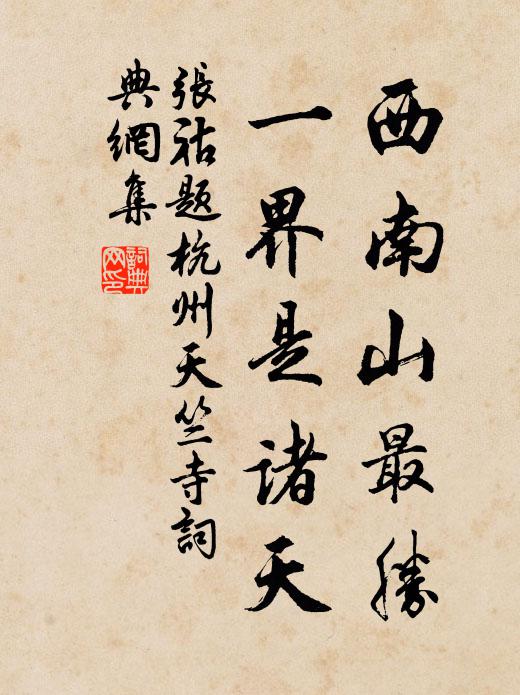 西南山最勝
一界是諸天
張祜題杭州天竺寺詞
典網集
詞典
网印